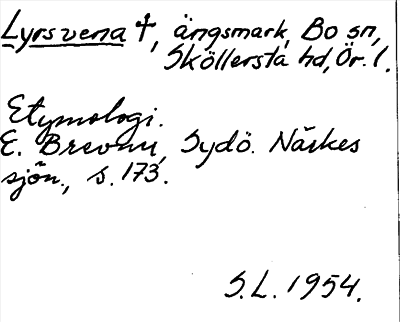 Lyrsvena †, ängsmark, Bo sn,
Sköllersta hd, Ör. l.
Etymologi.
E. Brevner, Sydö. Närkes
sjön., s. 173.
S.L. 1954.